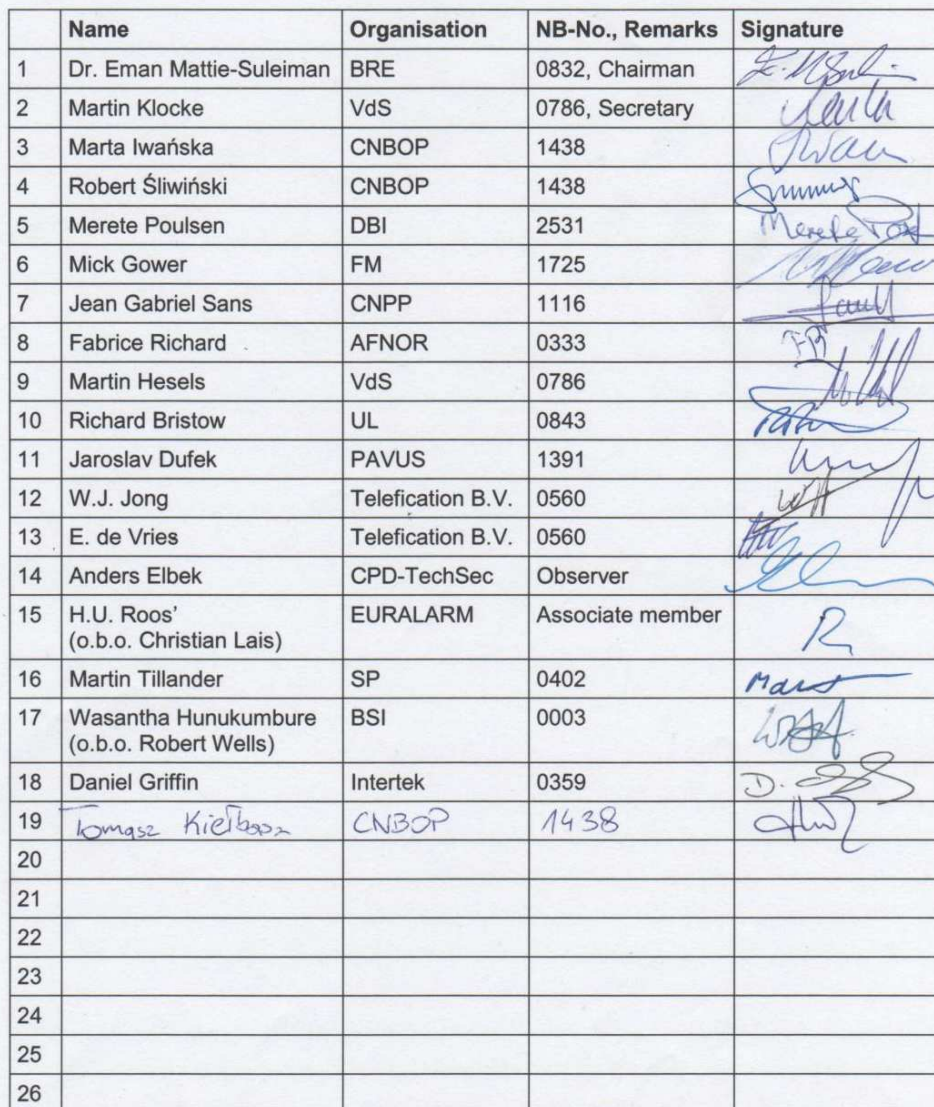 Name Organisation NB-No., Remarks Signature
1 Dr. Eman Mattie-Suleiman BRE 0832, Chairman
2 Martin Klocke VdS 0786, Secretary
3 Marta Iwańska CNBOP 1438
4 Robert Śliwiński CNBOP 1438
5 Merete Poulsen DBI 2531 Merete
6 Mick Gower FM 1725
7 Jean Gabriel Sans CNPP 1116
8 Fabrice Richard AFNOR 0333
9 Martin Hesels VdS 0786
10 Richard Bristow UL 0843
11 Jaroslav Dufek PAVUS 1391
12 W.J. Jong Telefication B.V. 0560
13 E. de Vries Telefication B.V. 0560
14 Anders Elbek CPD-TechSec Observer
15 H.U. Roos' EURALARM Associate member
(o.b.o. Christian Lais)
16 Martin Tillander SP 0402
17 Wasantha Hunukumbure BSI 0003
(o.b.o. Robert Wells)
18 Daniel Griffin Intertek 0359 D.
19 Tomasz CNBOP 1438
20
21
22
23
24
25
26